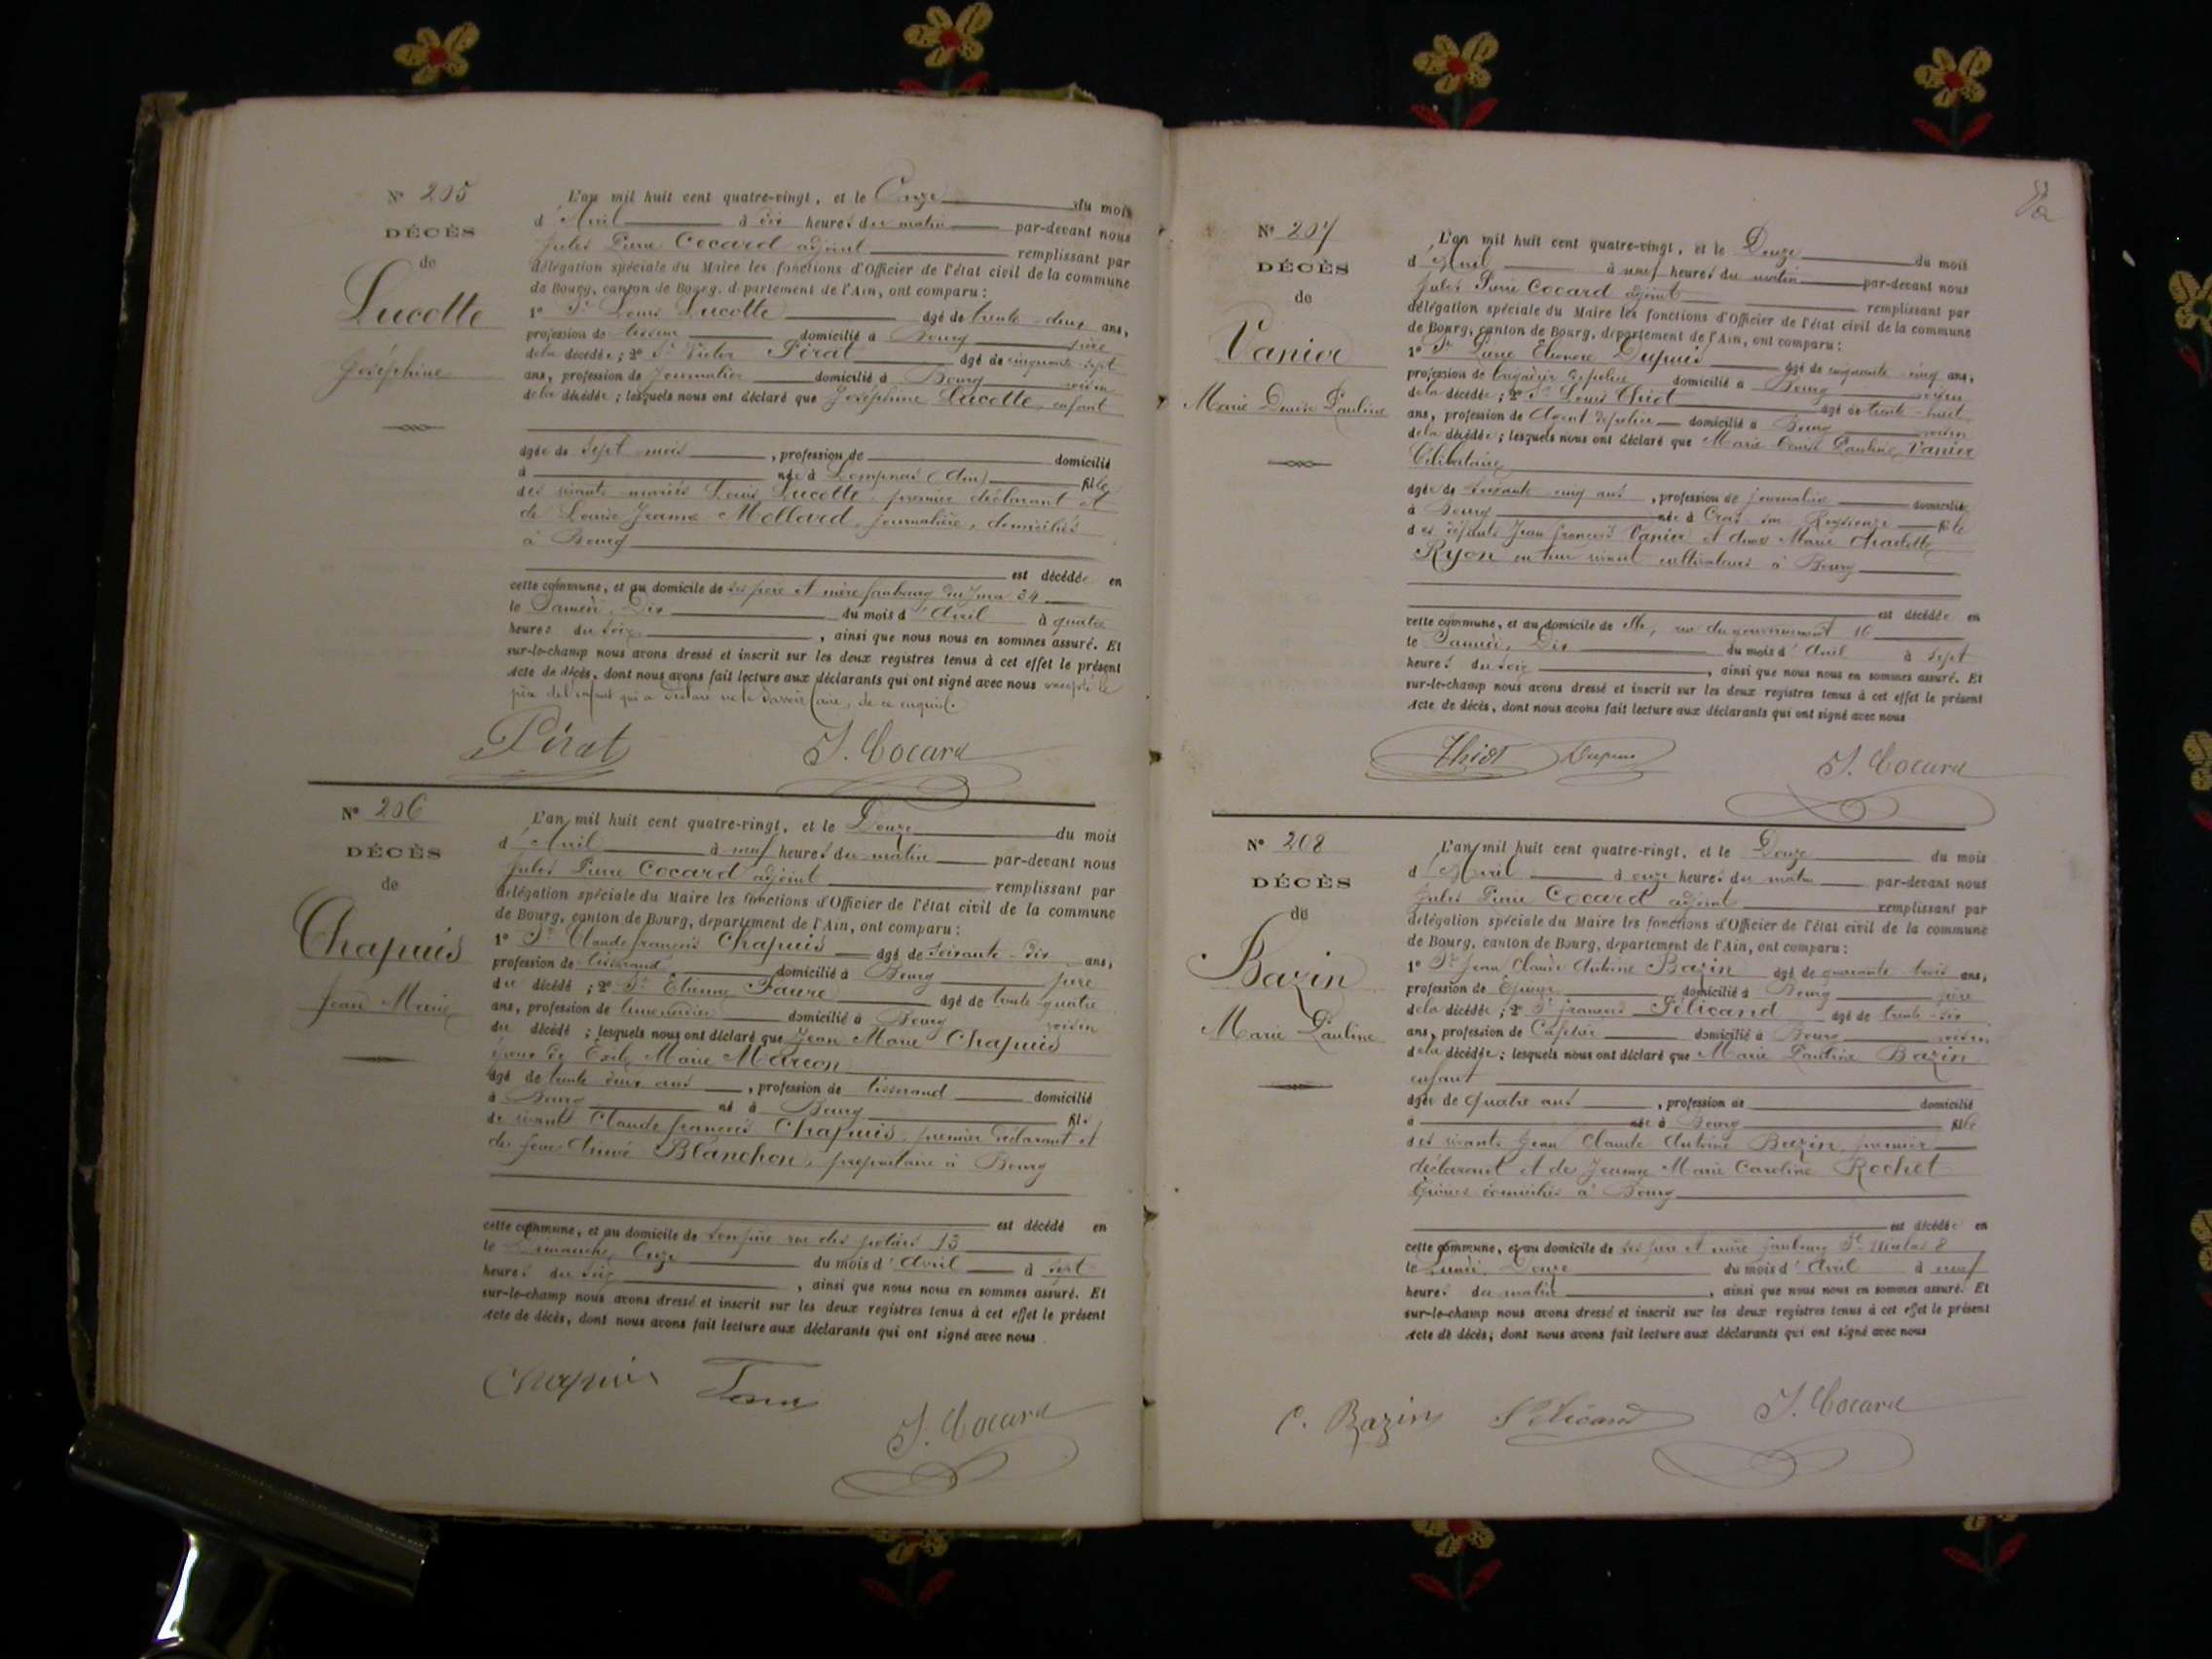 N° 205
DÉCÈS
de
Lucotte
Joséphine
L'an mil huit cent quatre-vingt, et le Onze du mois
d'Avril à dix heures du matin par-devant nous
Jules Pierre Cocard adjoint remplissant par
délégation spéciale du Maire les fonctions d'Officier de l'état civil de la commune
de Bourg, canton de Bourg, département de l'Ain, ont comparu :
1° Sr Louis Lucotte âgé de trente-deux ans,
profession de domicilié à Bourg père
de la décédée ; 2° Sr Victor Pérat âgé de cinquante-sept
ans, profession de Journalier domicilié à Bourg voisin
de la décédée ; lesquels nous ont déclaré que Joséphine Lucotte, enfant
âgée de Sept mois, profession de domicilié
à née à Lompnas (Ain) fille
des vivants mariés Louis Lucotte, premier déclarant et
de Louise Jeanne Mollard, journalière, domiciliés
à Bourg
est décédée en
cette commune, et au domicile de ses père et mère faubourg du Jura 34
le Samedi, Dix du mois d'Avril à quatre
heures du soir, ainsi que nous nous en sommes assuré. Et
sur-le-champ nous avons dressé et inscrit sur les deux registres tenus à cet effet le présent
Acte de décès, dont nous avons fait lecture aux déclarants qui ont signé avec nous excepté le
père de l'enfant qui a déclaré ne le savoir faire, de ce enquis.
Pérat J. Cocard
N° 206
DÉCÈS
de
Chapuis
Jean Marie
L'an mil huit cent quatre-vingt, et le Douze du mois
d'Avril à neuf heures du matin par-devant nous
Jules Pierre Cocard adjoint remplissant par
délégation spéciale du Maire les fonctions d'Officier de l'état civil de la commune
de Bourg, canton de Bourg, département de l'Ain, ont comparu :
1° Sr Claude françois Chapuis âgé de soixante-dix ans,
profession de tisserand domicilié à Bourg père
du décédé ; 2° Sr Etienne Faure âgé de trente-quatre
ans, profession de domicilié à Bourg voisin
du décédé ; lesquels nous ont déclaré que Jean Marie Chapuis
époux de Marie Marcon
âgé de trente deux ans, profession de tisserand domicilié
à Bourg né à Bourg fils
de vivant Claude françois Chapuis, premier déclarant et
de feue Blanchon, propriétaire à Bourg
est décédé en
cette commune, et au domicile de son père rue des potiers 13
le Dimanche, Onze du mois d'Avril à sept
heures du soir, ainsi que nous nous en sommes assuré. Et
sur-le-champ nous avons dressé et inscrit sur les deux registres tenus à cet effet le présent
Acte de décès, dont nous avons fait lecture aux déclarants qui ont signé avec nous
Chapuis Faure
J. Cocard
N° 207
DÉCÈS
de
Vanier
Marie Denise Pauline
L'an mil huit cent quatre-vingt, et le Douze du mois
d'Avril à neuf heures du matin par-devant nous
Jules Pierre Cocard adjoint remplissant par
délégation spéciale du Maire les fonctions d'Officier de l'état civil de la commune
de Bourg, canton de Bourg, département de l'Ain, ont comparu :
1° Sr Pierre Eléonore Dupuis âgé de cinquante-cinq ans,
profession de brigadier de police domicilié à Bourg voisin
de la décédée ; 2° Sr Louis Thiot âgé de trente-huit
ans, profession de Agent de police domicilié à Bourg voisin
de la décédée ; lesquels nous ont déclaré que Marie Denise Pauline Vanier
Célibataire
âgée de soixante cinq ans, profession de journalière domiciliée
à Bourg née à Cras sur Reyssouze fille
des défunts Jean françois Vanier et de Marie
Ryon en leur vivant cultivateurs à Bourg
est décédée en
cette commune, et au domicile de elle, rue du gouvernement 16
le Samedi, Dix du mois d'Avril à sept
heures du soir, ainsi que nous nous en sommes assuré. Et
sur-le-champ nous avons dressé et inscrit sur les deux registres tenus à cet effet le présent
Acte de décès, dont nous avons fait lecture aux déclarants qui ont signé avec nous
Thiot Dupuis J. Cocard
N° 208
DÉCÈS
de
Bazin
Marie Pauline
L'an mil huit cent quatre-vingt, et le Douze du mois
d'Avril à onze heures du matin par-devant nous
Jules Pierre Cocard adjoint remplissant par
délégation spéciale du Maire les fonctions d'Officier de l'état civil de la commune
de Bourg, canton de Bourg, département de l'Ain, ont comparu :
1° Sr Jean Claude Antoine Bazin âgé de quarante-trois ans,
profession de Epicier domicilié à Bourg père
de la décédée ; 2° Sr françois Pélicand âgé de trente-six
ans, profession de Cafetier domicilié à Bourg voisin
de la décédée ; lesquels nous ont déclaré que Marie Pauline Bazin
enfant
âgée de quatre ans, profession de domicilié
à née à Bourg fille
des vivants Jean Claude Antoine Bazin, premier
déclarant et de Jeanne Marie Caroline Rochet
Epiciers domiciliés à Bourg
est décédée en
cette commune, et au domicile de ses père et mère faubourg St Nicolas 8
le Lundi, Douze du mois d'Avril à neuf
heures du matin, ainsi que nous nous en sommes assuré. Et
sur-le-champ nous avons dressé et inscrit sur les deux registres tenus à cet effet le présent
Acte de décès, dont nous avons fait lecture aux déclarants qui ont signé avec nous
C. Bazin Pélicand J. Cocard